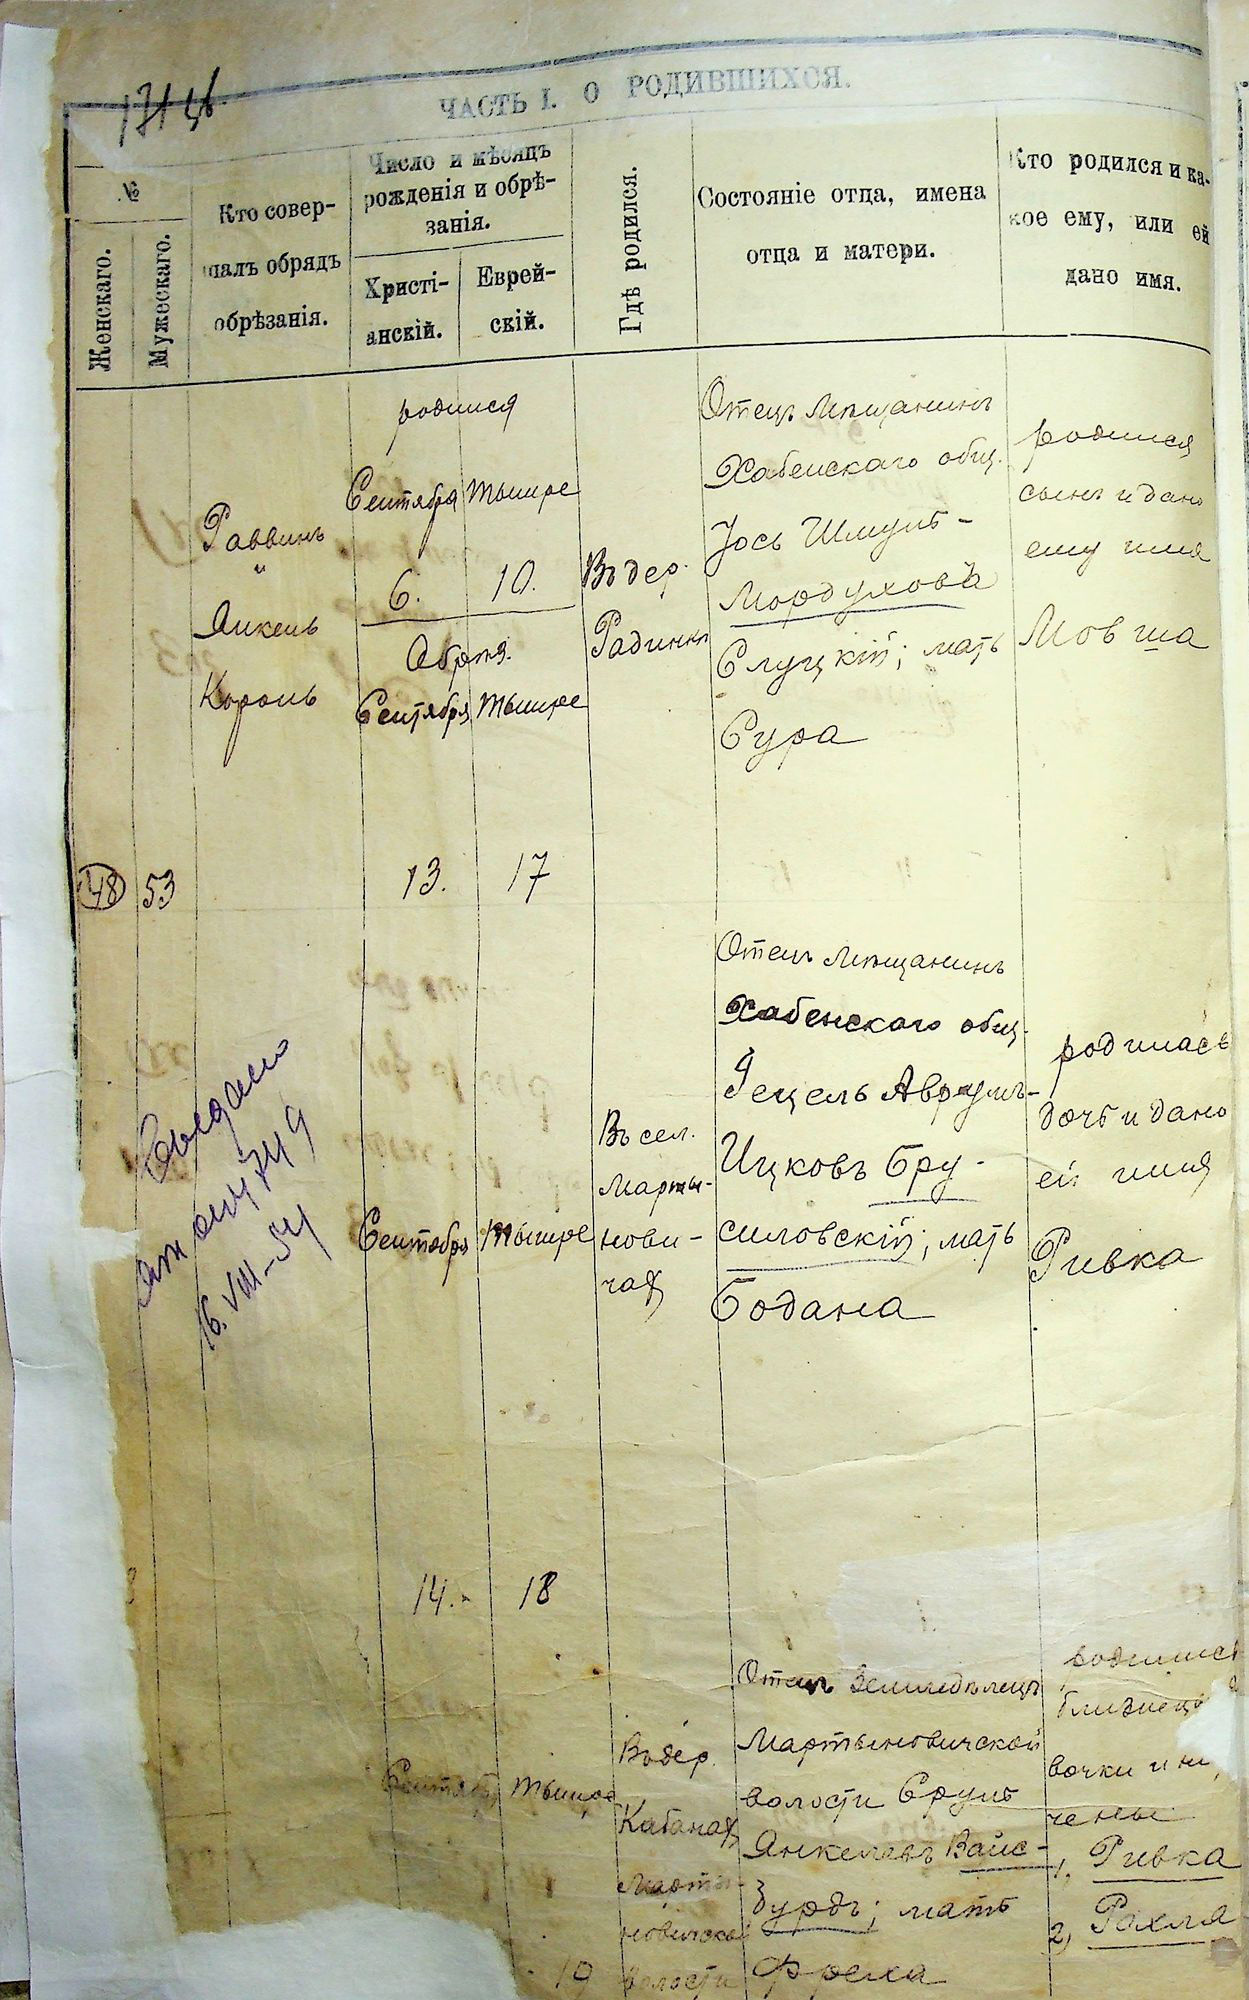 ЧАСТЬ I. О РОДИВШИХСЯ.
№
Женскаго.
Мужескаго.
Кто совер-
шалъ обрядъ
обрѣзанія.
Число и мѣсяцъ
рожденія и обрѣ-
занія.
Христі-
анскій.
Еврей-
скій.
Гдѣ родился.
Состояніе отца, имена
отца и матери.
Кто родился и ка-
кое ему, или ей
дано имя.
53
Раввинъ
"
Янкель
Король
родился
Сентября Тышре
6. 10.
Обрѣз.
Сентября Тышре
13. 17
Въ дер.
Радинкѣ
Отецъ мѣщанинъ
Хабенскаго общ.
Іось Шмуль-
Мордуховъ
Слуцкій; мать
Сура
родился
сынъ и дано
ему имя
Мовша
48
Выдано
16.VIII-54
Сентября Тышре
14. 18
Въ сел.
Марты-
нови-
чах
Отецъ мѣщанинъ
Хабенскаго общ.
Гецель Аврумъ-
Ицковъ Бру-
силовскій; мать
Бодана
родилась
дочь и дано
ей имя
Ривка
Сентября Тышре
19
Въ дер.
Кабанах
Марты-
новичской
волости
Отецъ Земледѣлецъ
Мартыновичской
волости Сруль
Янкелевъ Вайс-
бурдъ; мать
Фрейда
родились
близнецы
вочки и на
чены
1, Ривка
2, Рахля